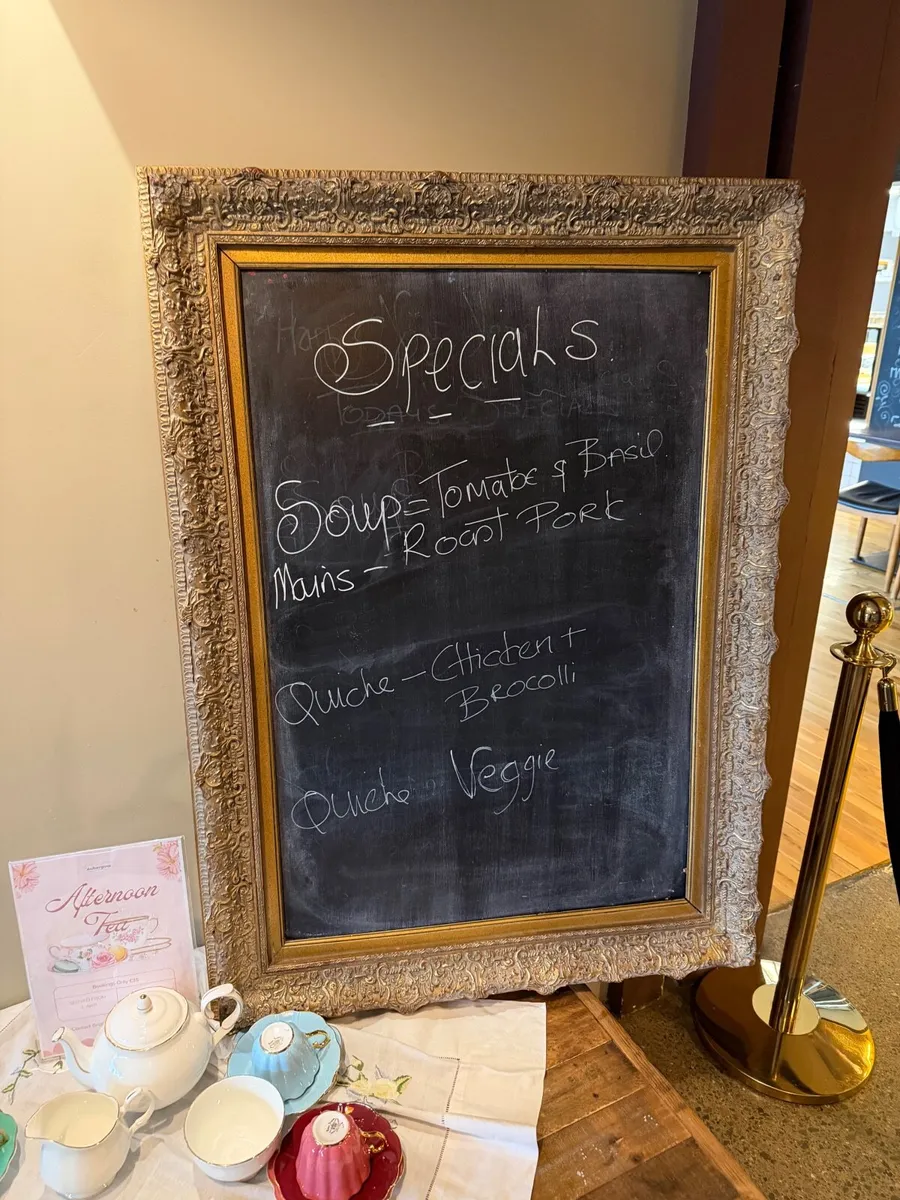 Specials.
TODAYS SPECIALS
Soup = Tomatoe & Basil.
Mains - Roast Pork
Quiche - Chicken +
Brocolli
Quiche - Veggie
Afternoon
Tea